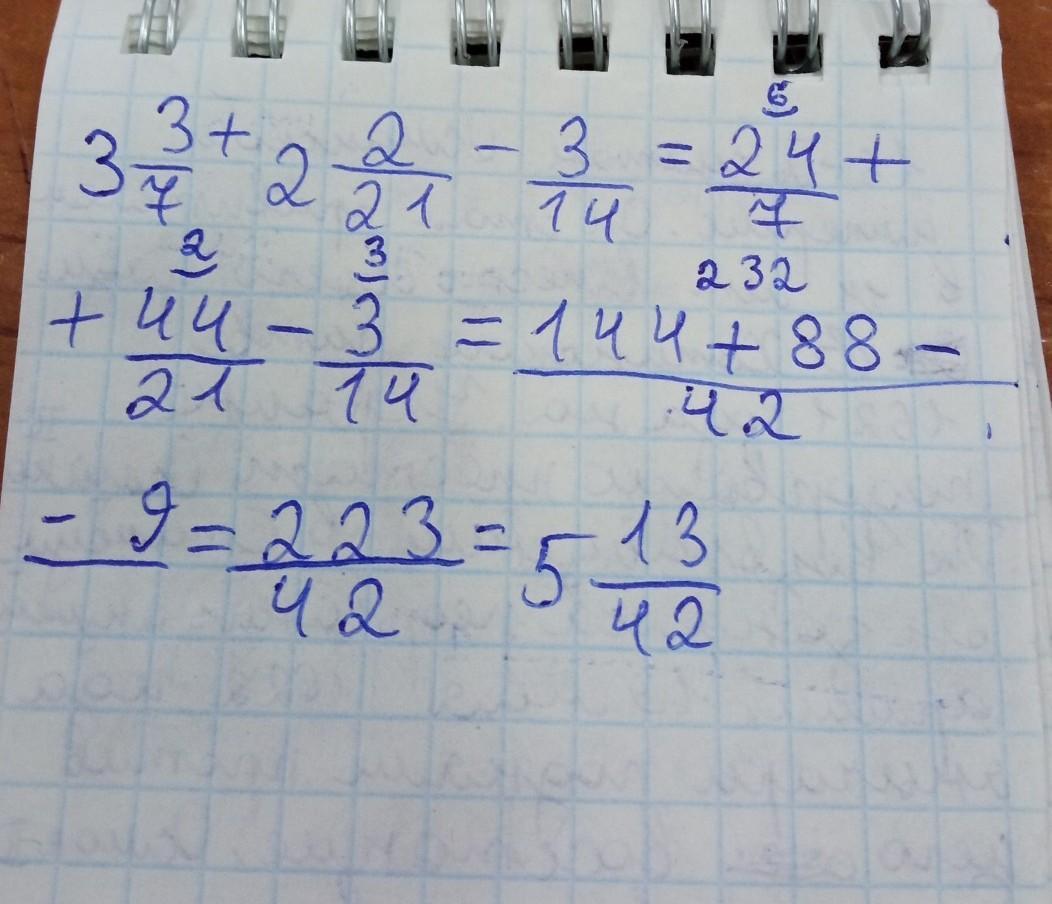 3 3/7 + 2 2/21 - 3/14 = 24/7 (6) +
+ 44/21 (2) - 3/14 (3) = (144 + 88 - (232))/42
- 9 = 223/42 = 5 13/42